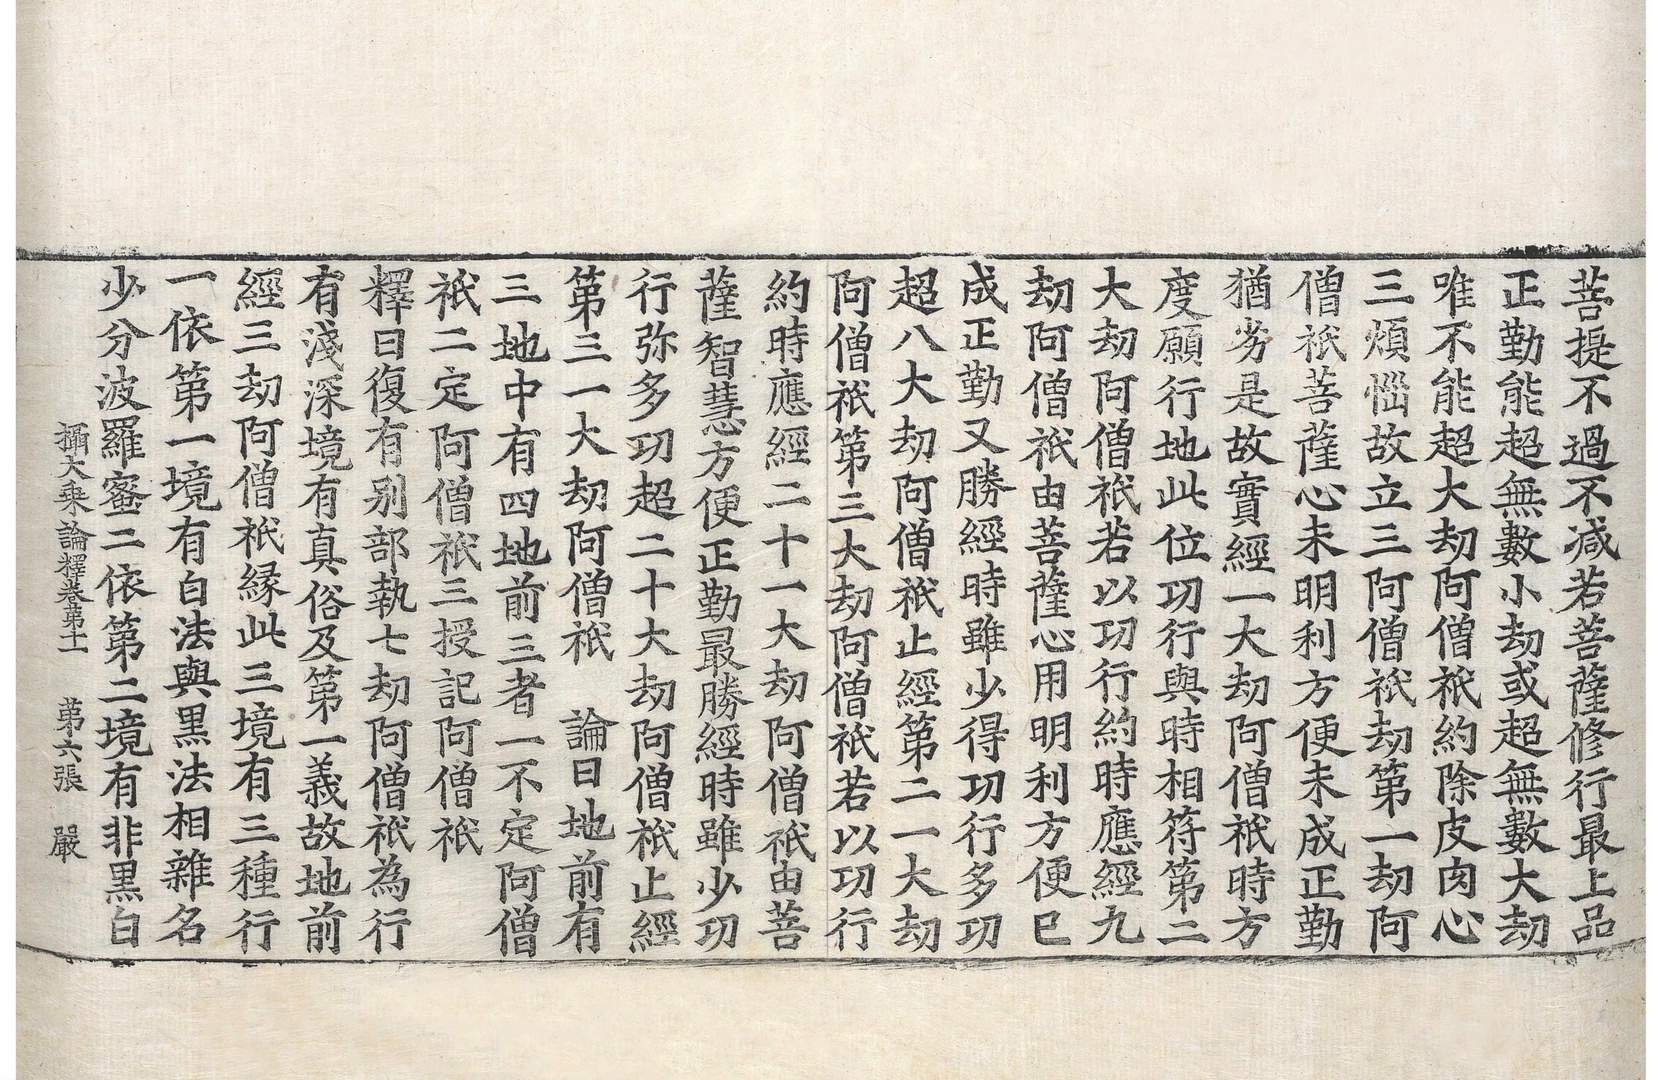 菩提不過不減若菩薩修行最上品
正勤能超無數小劫或超無數大劫
唯不能超大劫阿僧祇約除皮肉心
三煩惱故立三阿僧祇劫第一劫阿
僧祇菩薩心未明利方便未成正勤
猶劣是故實經一大劫阿僧祇時方
度願行地此位功行與時相符第二
大劫阿僧祇若以功行約時應經九
劫阿僧祇由菩薩心用明利方便已
成正勤又勝經時雖少得功行多功
超八大劫阿僧祇止經第二一大劫
阿僧祇第三大劫阿僧祇若以功行
約時應經二十一大劫阿僧祇由菩
薩智慧方便正勤最勝經時雖少功
行弥多功超二十大劫阿僧祇止經
第三一大劫阿僧祇　論曰地前有
三地中有四地前三者一不定阿僧
祇二定阿僧祇三授記阿僧祇
釋曰復有別部執七劫阿僧祇為行
有淺深境有真俗及第一義故地前
經三劫阿僧祇緣此三境有三種行
一依第一境有白法與黒法相雜名
少分波羅蜜二依第二境有非黒白
攝大乘論釋卷第十一　第六張　嚴